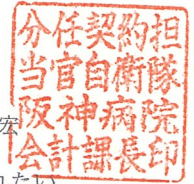 分任契約担
当官自衛隊
阪神病院
会計課長印
宏
たい